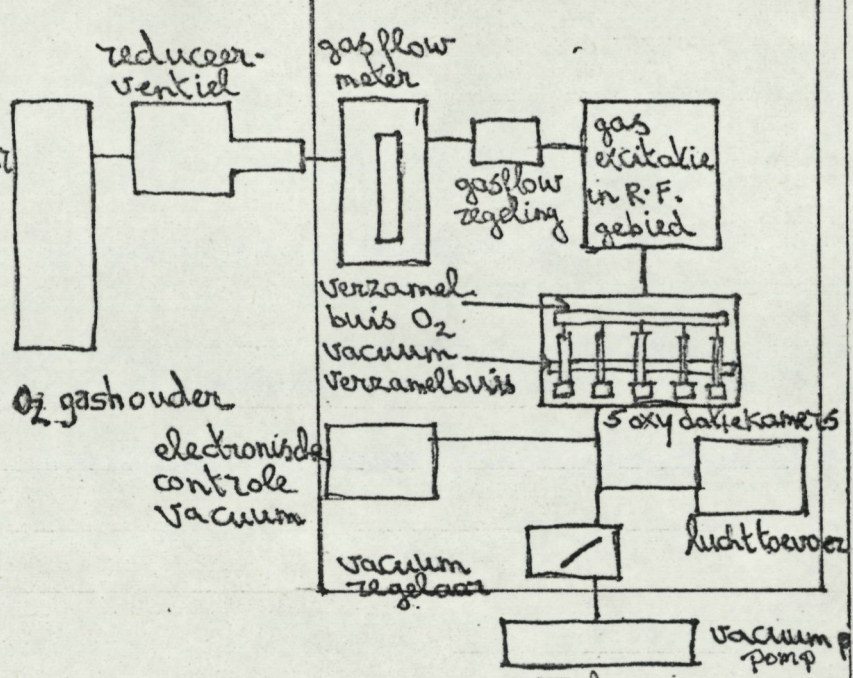 reduceer-
ventiel
gasflow
meter
gas
excitatie
in R.F.
gebied
gasflow
regeling
verzamel
buis O₂
vacuum
verzamelbuis
O₂ gashouder
5 oxydatiekamers
electronische
controle
vacuum
luchttoevoer
vacuum
regelaar
vacuum
pomp